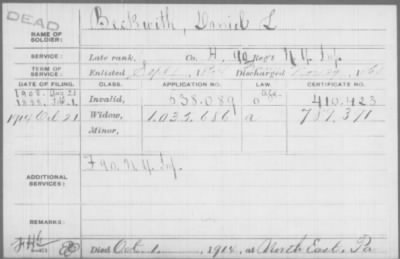 DEAD
NAME OF SOLDIER: Beckwith, Daniel L
SERVICE: Late rank, Co. H, 90 Reg't N.Y. Inf.
TERM OF SERVICE: Enlisted Sept. Discharged
DATE OF FILING. CLASS. APPLICATION NO. LAW. CERTIFICATE NO.
1908. Aug
Invalid, 538.089 410.423
1914 Oct 21 Widow, 1.035.686 a 787.371
Minor,
ADDITIONAL SERVICES: F 90 N.Y. Inf.
REMARKS:
Died Oct. 1, 1914, at North East, Pa